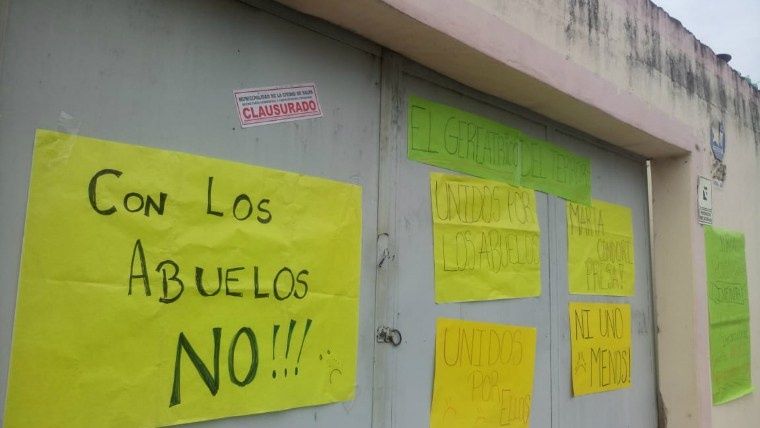 MUNICIPALIDAD DE LA CIUDAD DE SALTA
CLAUSURADO
CON LOS
ABUELOS
NO!!!
EL GEREATRICO DEL TERROR
UNIDOS POR
LOS ABUELOS
MARTA
CONDORI
PRESA!
UNIDOS
POR
ELLOS
NI UNO
MENOS!